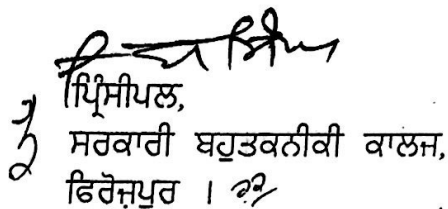 ਪ੍ਰਿੰਸੀਪਲ,
ਸਰਕਾਰੀ ਬਹੁਤਕਨੀਕੀ ਕਾਲਜ,
ਫਿਰੋਜ਼ਪੁਰ ।